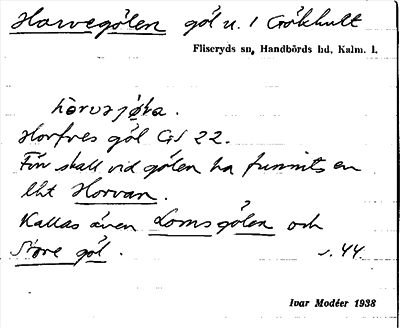 Horvegölen göl n. 1 Gökhult
Fliseryds sn, Handbörds hd, Kalm. l.
hòrvəjø̀ka.
Horfves göl GS 22.
Förr skall vid gölen ha funnits en
lht Horvan.
Kallas även Lomsgölen och
Støre göl. s. 44.
Ivar Modéer 1938